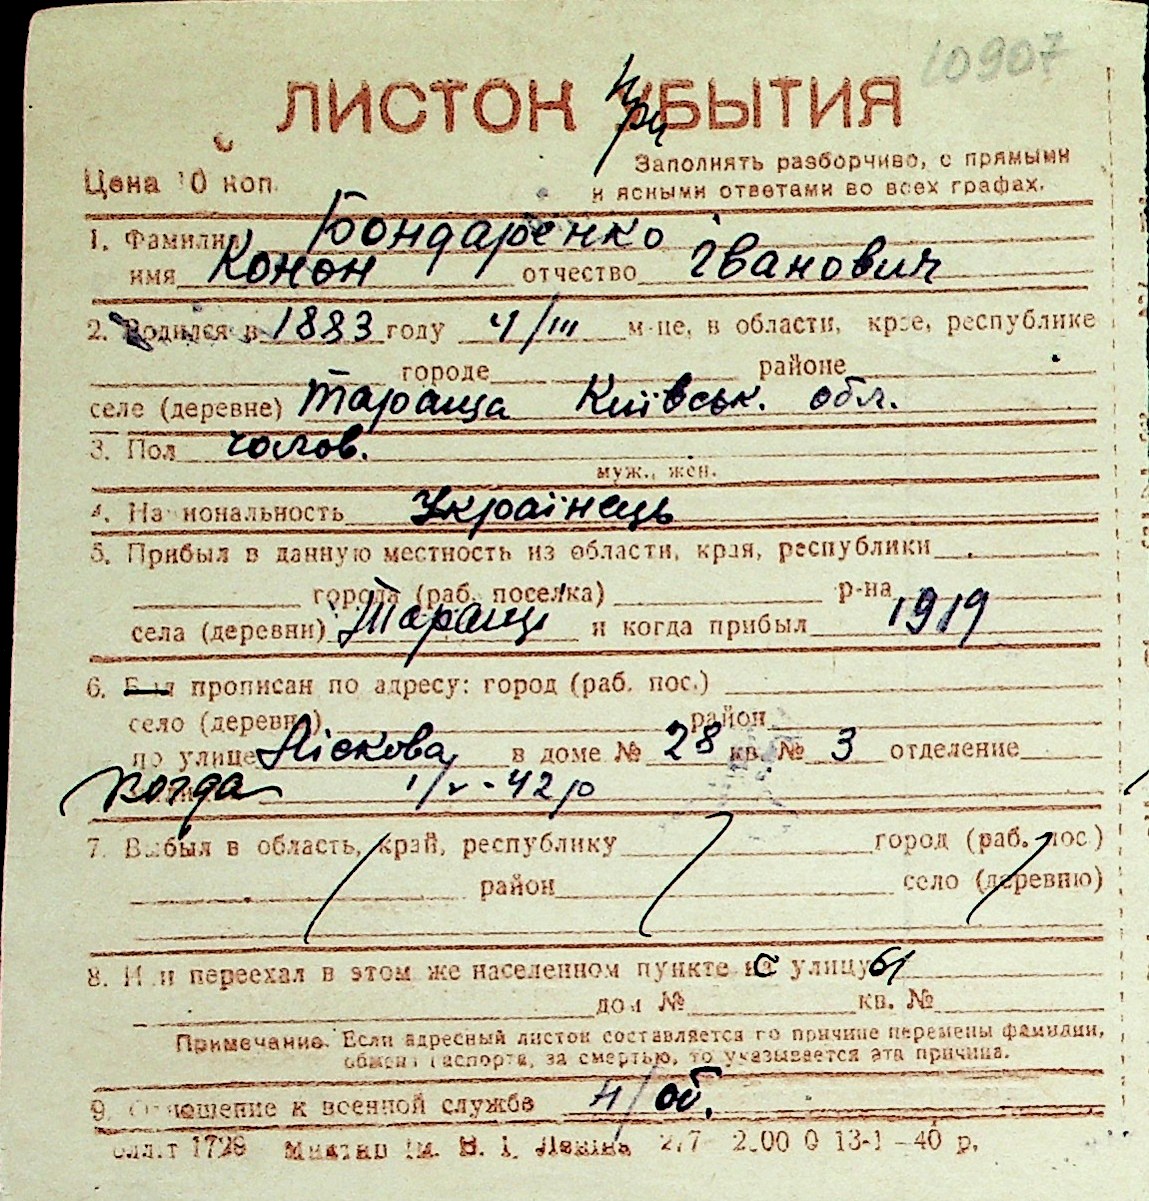 10907
ЛИСТОК УБЫТИЯ
при
Заполнять разборчиво, с прямыми
и ясными ответами во всех графах.
Цена 10 коп.
1. Фамилия Бондаренко
имя Конон отчество Іванович
2. Родился в 1883 году 4/III м-це, в области, крае, республике
городе районе
селе (деревне) Тараща Київськ. обл.
3. Пол чолов.
муж., жен.
4. Национальность Українець
5. Прибыл в данную местность из области, края, республики
города (раб. поселка) р-на
села (деревни) Таращі и когда прибыл 1919
6. Был прописан по адресу: город (раб. пос.)
село (деревня) район
по улице Лískова в доме № 28 кв. № 3 отделение
когда 1/V-42 р
7. Выбыл в область, край, республику город (раб. пос.)
район село (деревню)
8. Или переехал в этом же населенном пункте с улицы
дом № кв. №
Примечание. Если адресный листок составляется по причине перемены фамилии,
обмена паспорта, за смертью, то указывается эта причина.
9. Отношение к военной службе н/об.
1728 им. В. І. Леніна 2.00 0 13-1-40 р.